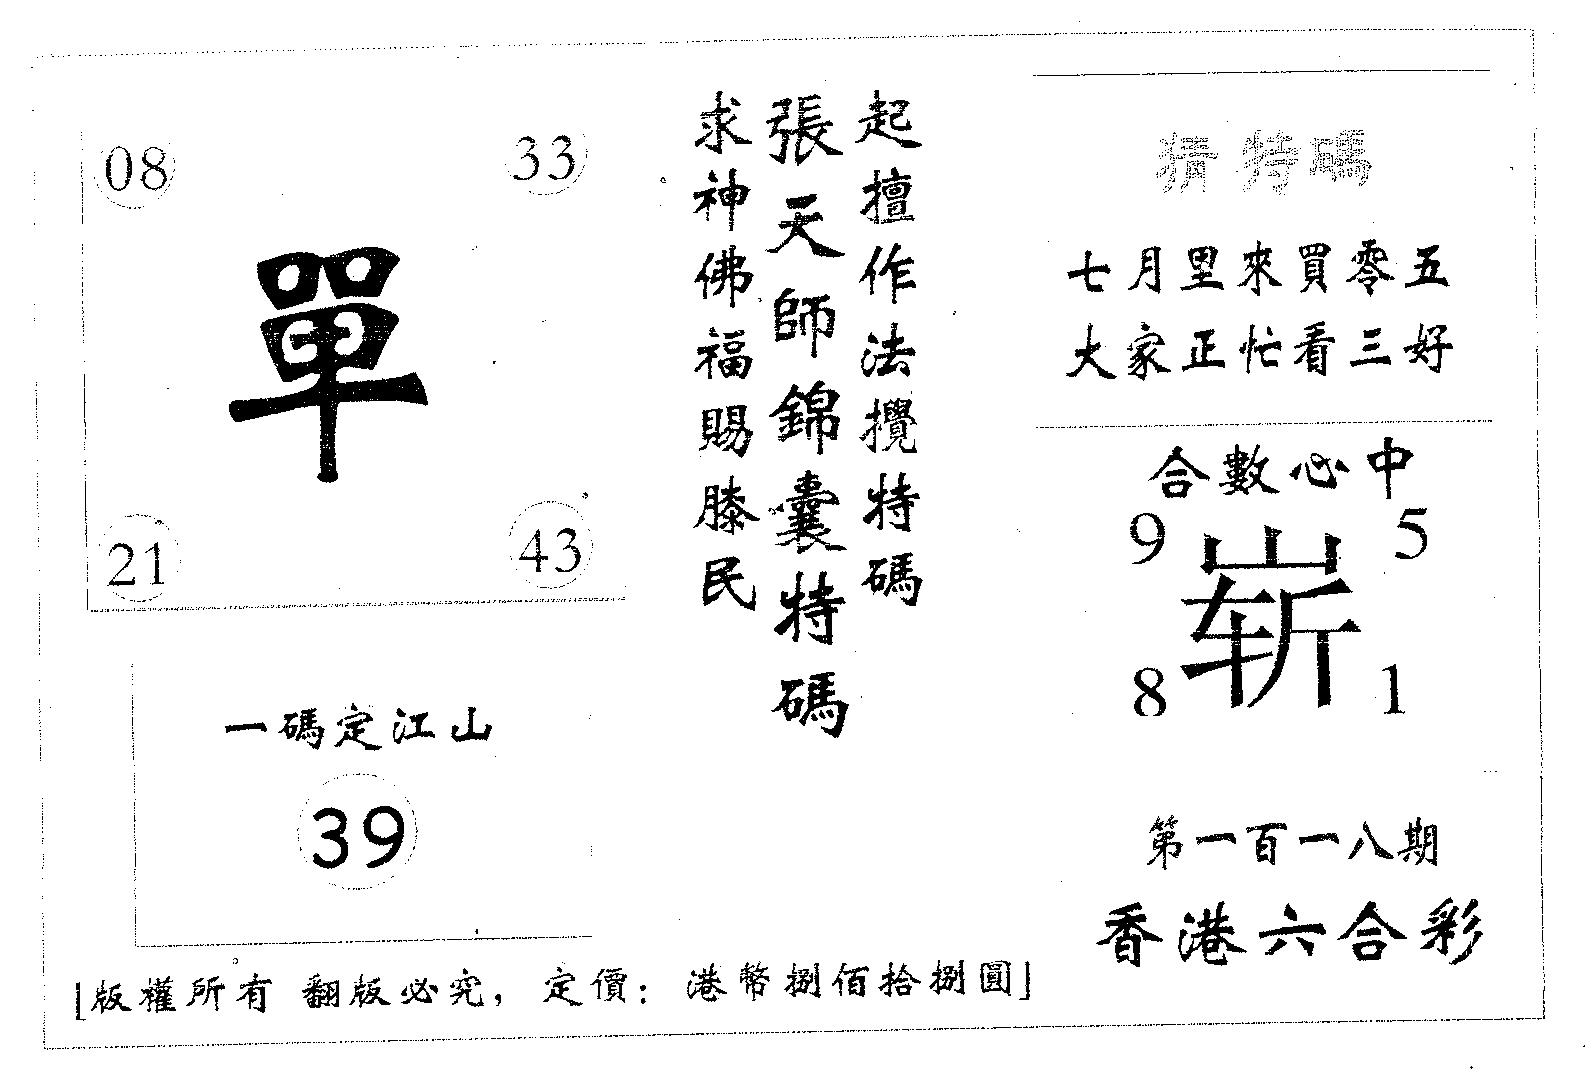 08 33
單
21 43
一碼定江山
39
起擅作法攪特碼
張天師錦囊特碼
求神佛福賜膝民
猜特碼
七月里來買零五
大家正忙看三好
合數必中
9 5
崭
8 1
第一百一八期
香港六合彩
[版權所有 翻版必究，定價：港幣捌佰拾捌圓]